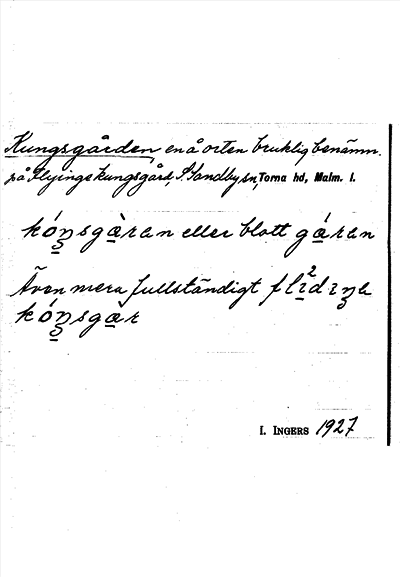 Kungsgården, en å orten bruklig benämn.
på Flyinge kungsgård, S. Sandby sn, Torna hd, Malm. l.
kóŋsgàran eller blott gáran
Även mera fullständigt
kóŋsgar
I. INGERS 1927